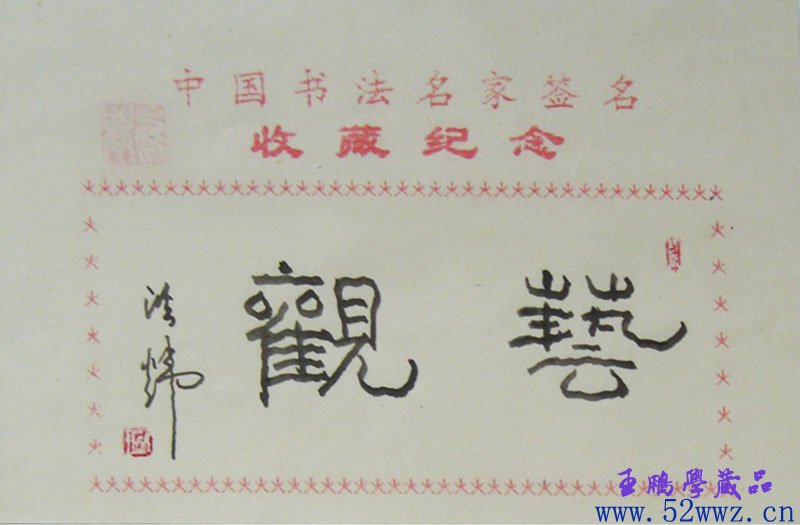 中国书法名家签名
收藏纪念
藝觀
法煒
王鹏學藏品
www.52wwz.cn